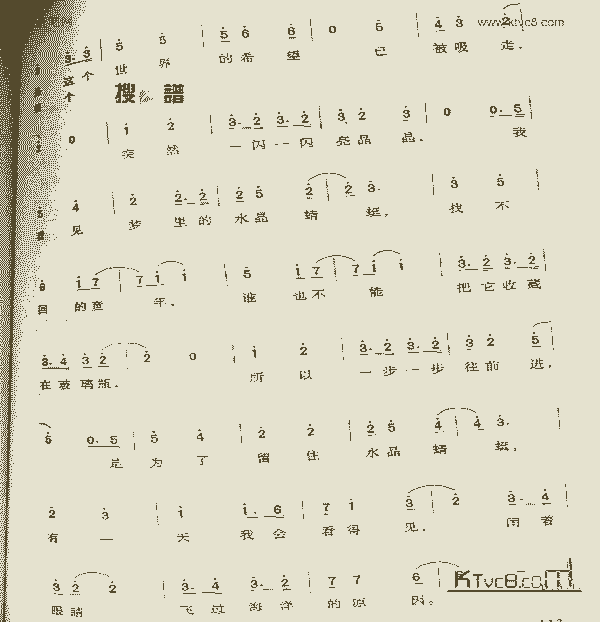 www.ktvc8.com
3. 3 | 5 5 | 5 6 6 | 0 5 | 4 3 2 |
这个 世界 的希望 已 被吸走.
搜 譜
0 | 1 2 | 3. 2 3. 2 | 3 2 3 | 0 0. 5
突然 一闪一闪亮晶晶. 我
4 | 2 2. 2 | 2 5 2 | 2 3. | 3 5 |
见 梦里的水晶蜻蜓, 找不
6 1 7 | 7 1 1 | 5 1 7 | 7 1 1 | 3. 2 3. 2 |
回的童年, 谁也不能 把它收藏
3. 4 3 2 | 2 0 | 1 2 | 3. 2 3. 2 | 3 2 5 |
在玻璃瓶. 所以 一步一步往前进,
5 0. 5 | 5 4 | 2 2 | 2 5 4 | 4 3. |
是为了留住水晶蜻蜓,
2 3 | 1 1. 6 | 7 1 3 | 2 3. 4 |
有一天我会看得见. 闭着
3 2 2 | 3. 4 3. 2 | 7 7 6 |
眼睛 飞过海洋的原因。
KTvc8.com